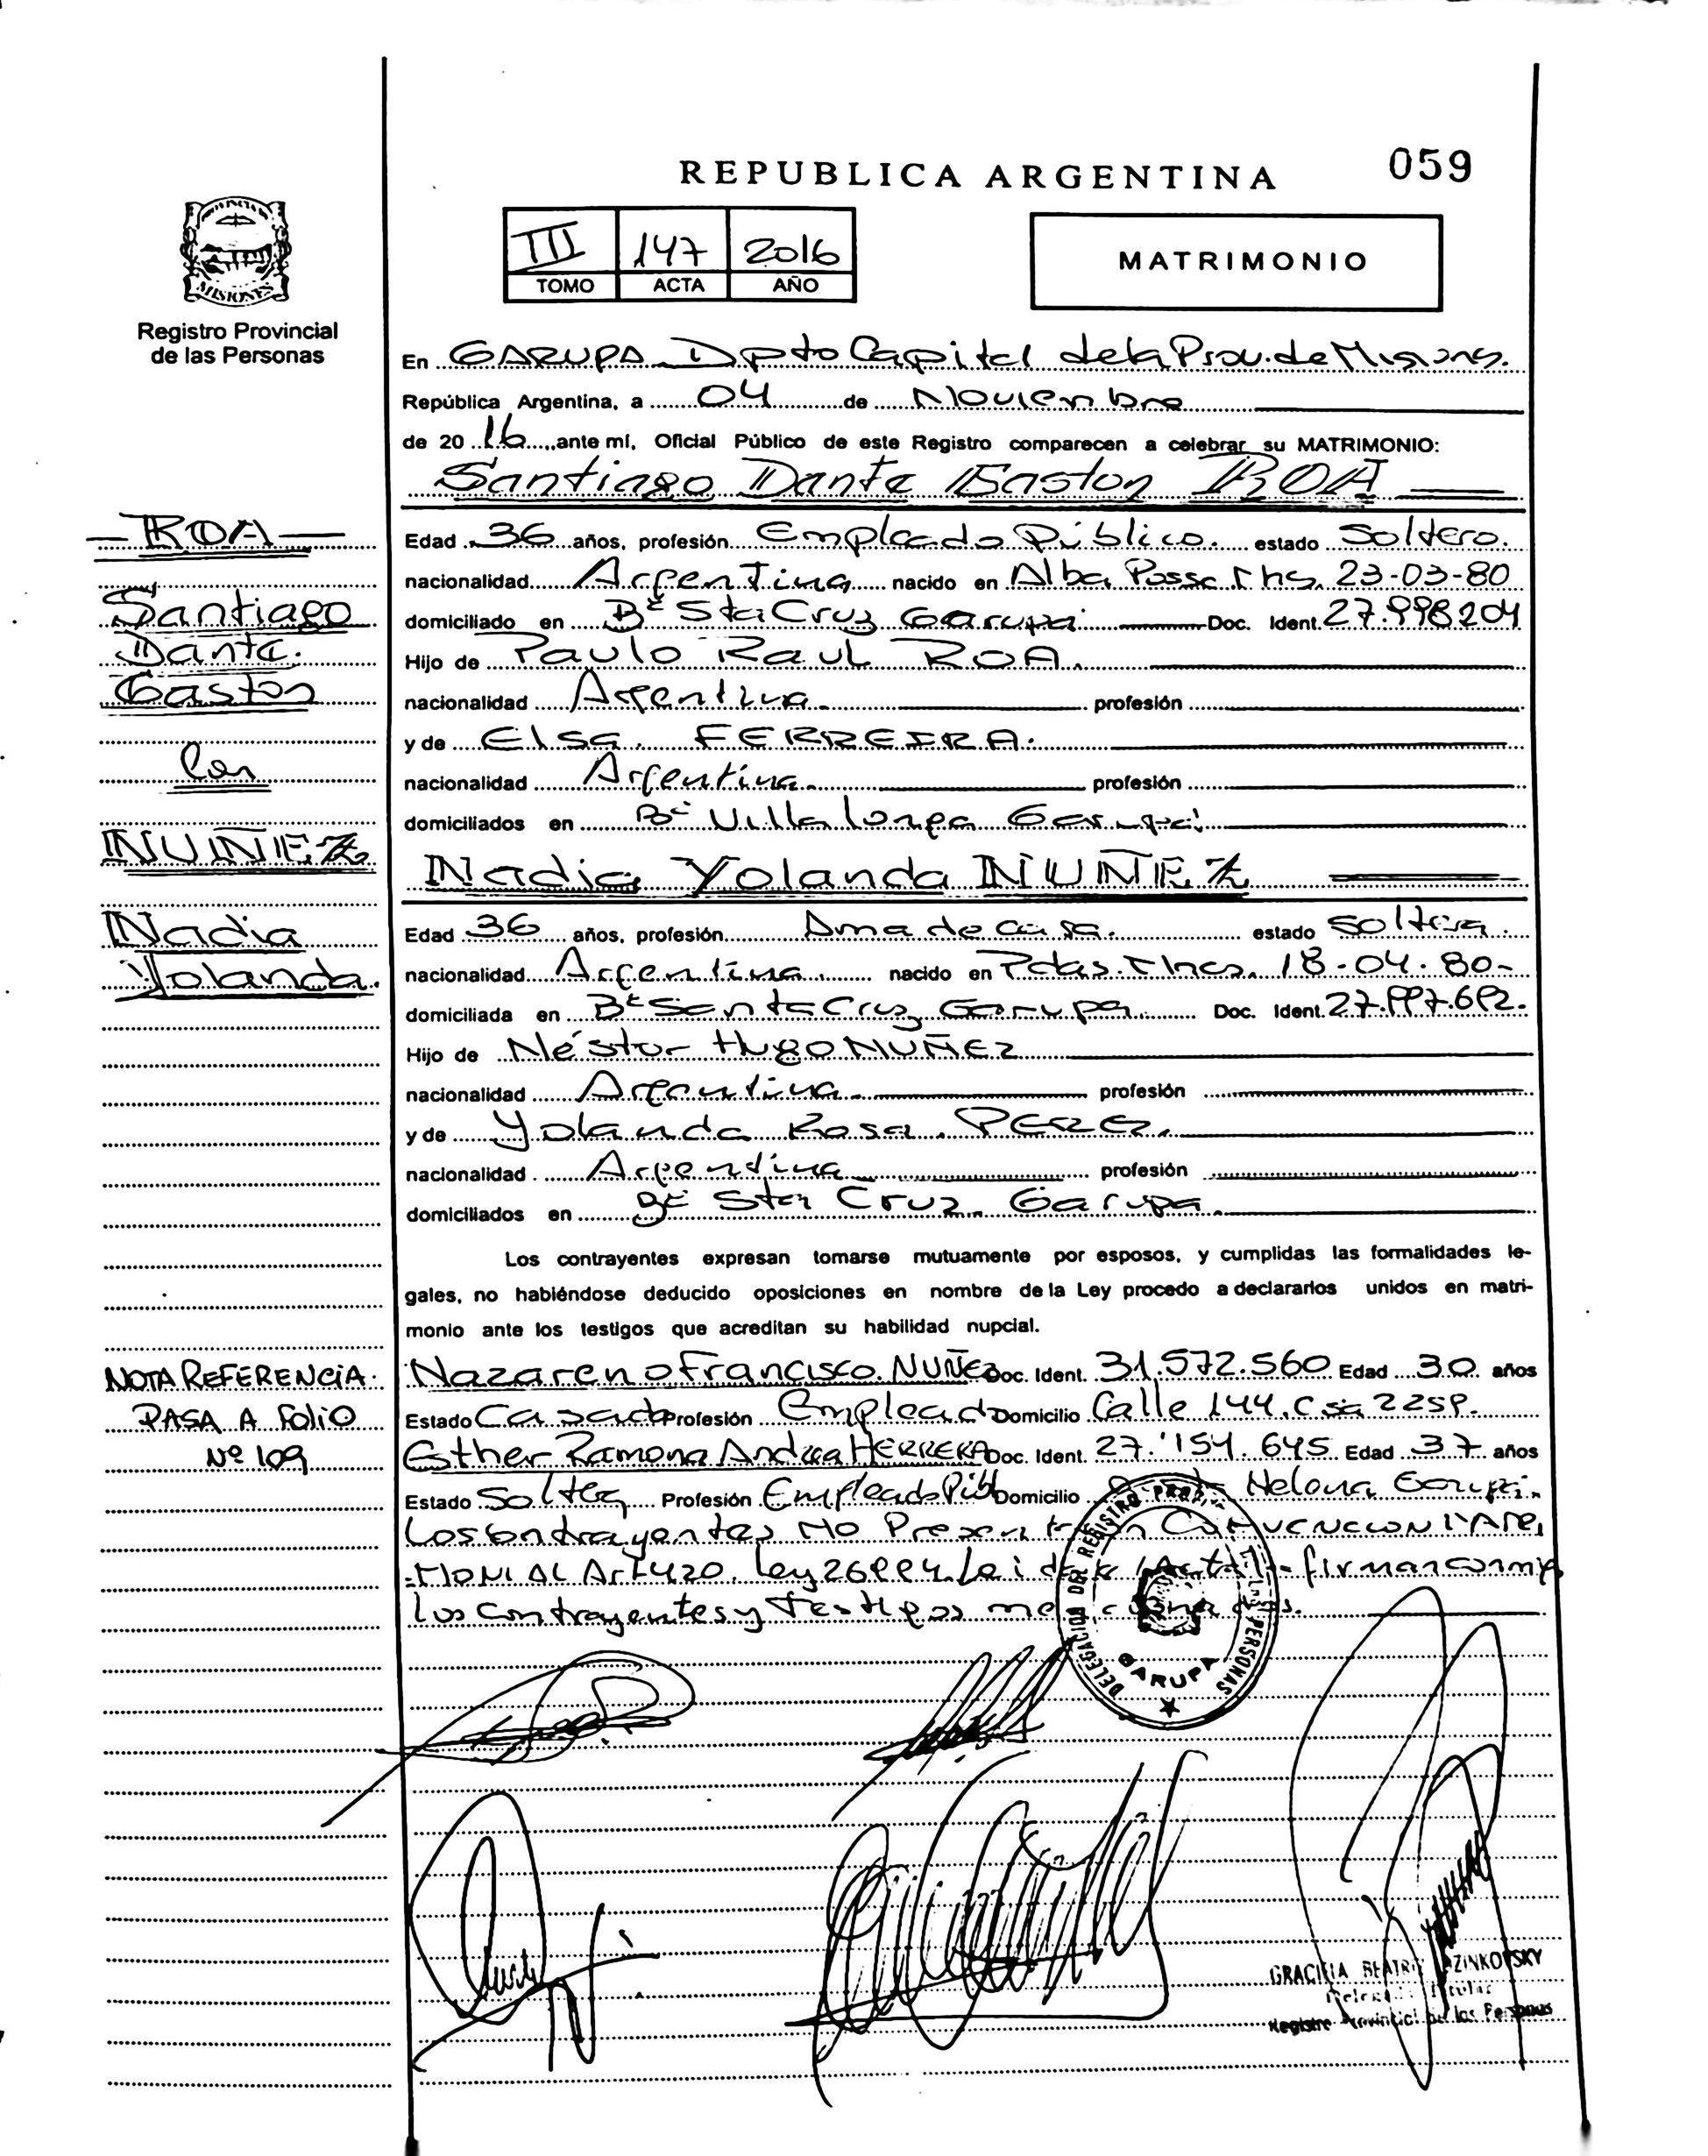 REPUBLICA ARGENTINA
059
PROVINCIA DE
MISIONES
Registro Provincial
de las Personas
III 147 2016
TOMO ACTA AÑO
MATRIMONIO
En GARUPA Dpto Capital de la Prov. de Misiones.
República Argentina, a 04 de Noviembre
de 20 16 ante mí, Oficial Público de este Registro comparecen a celebrar su MATRIMONIO:
Santiago Dante Gaston ROA
ROA
Santiago
Dante
Gaston
Con
NUÑEZ
Nadia
Yolanda.
Edad 36 años, profesión Empleado Público. estado Soltero.
nacionalidad Argentina nacido en Alba Posse 23-03-80
domiciliado en Bº Sta Cruz Garupa Doc. Ident. 27.998204
Hijo de Paulo Raul ROA.
nacionalidad Argentina profesión
y de Elsa FERREIRA.
nacionalidad Argentina profesión
domiciliados en Bº Villalonga Garupa
Nadia Yolanda NUÑEZ
Edad 36 años, profesión Ama de casa. estado Soltera.
nacionalidad Argentina nacido en Pdas. 18-04-80-
domiciliada en Bº Santa Cruz Garupa Doc. Ident. 27.997.692-
Hijo de Néstor Hugo NUÑEZ
nacionalidad Argentina profesión
y de Yolanda Rosa PEREZ.
nacionalidad Argentina profesión
domiciliados en Bº Sta Cruz Garupa.
Los contrayentes expresan tomarse mutuamente por esposos, y cumplidas las formalidades le-
gales, no habiéndose deducido oposiciones en nombre de la Ley procedo a declararlos unidos en matri-
monio ante los testigos que acreditan su habilidad nupcial.
NOTA REFERENCIA.
PASA A FOLIO
Nº 109
Nazareno Francisco NUÑEZ Doc. Ident. 31.572.560 Edad 30 años
Estado Casado Profesión Empleado Domicilio Calle 144. Csa
Esther Ramona Andrea HERRERA Doc. Ident. 27.154.645 Edad 37 años
Estado Soltera Profesión Empleado Púb Domicilio Helena Garupa.
Los Contrayentes NO Presentaron CONVENCION MATRI
MONIAL Art 420. Ley 26994. Leida el Acta firman conmigo
los Contrayentes y Testigos mencionados.
DELEGACION DEL REGISTRO PROV. DE LAS PERSONAS
GARUPA
GRACIELA BEATRIZ
Delegada Titular
Registro Provincial de las Personas